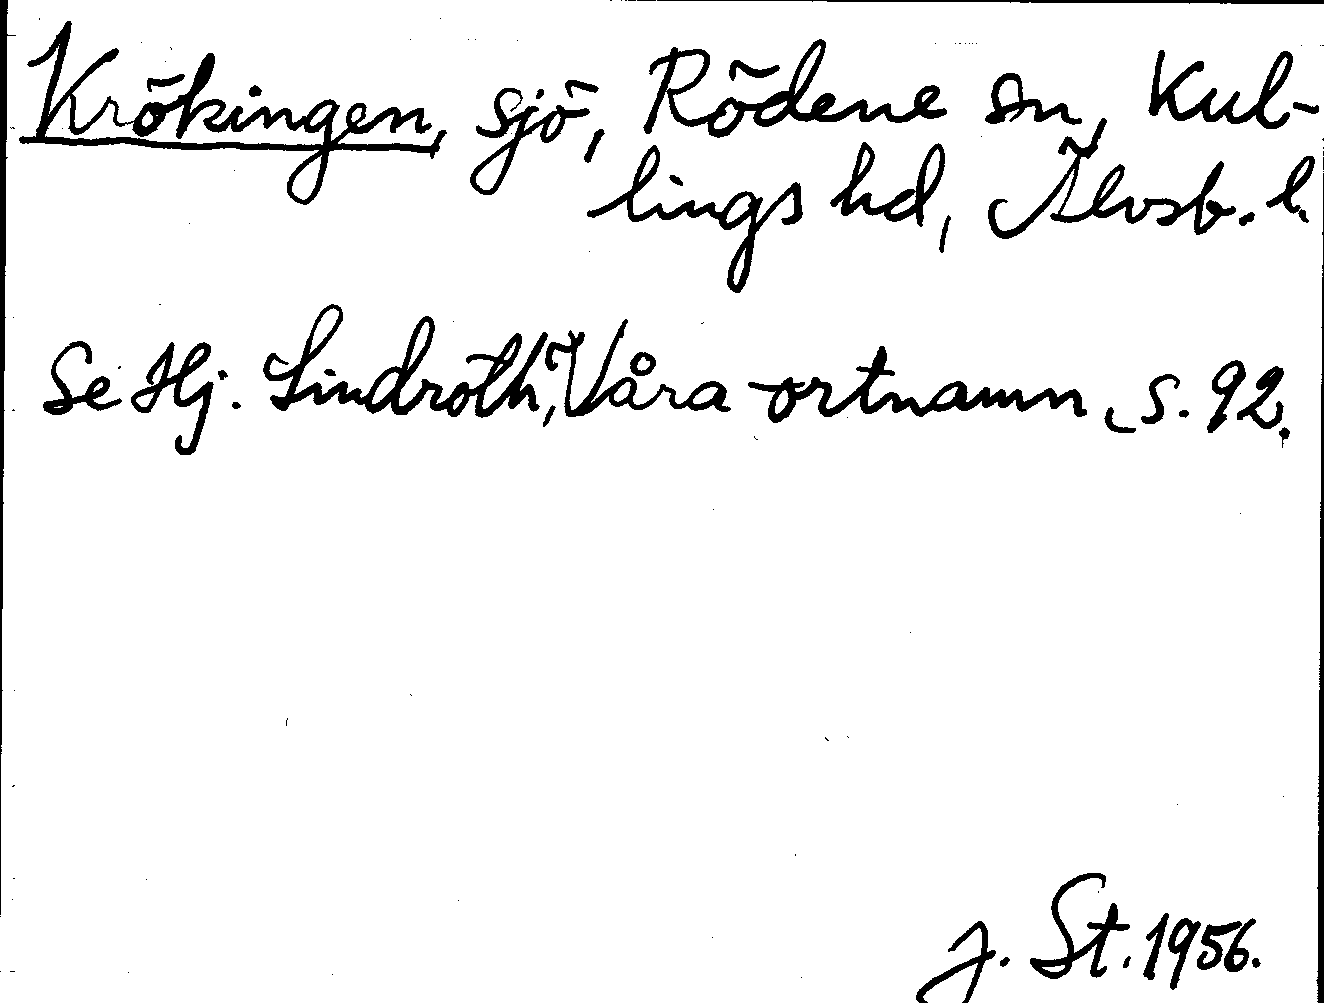 Krökingen, sjö, Rödene sn, Kul-
lings hd, Älvsb. l.
Se Hj. Lindroth, Våra ortnamn, s. 92.
J. St. 1956.